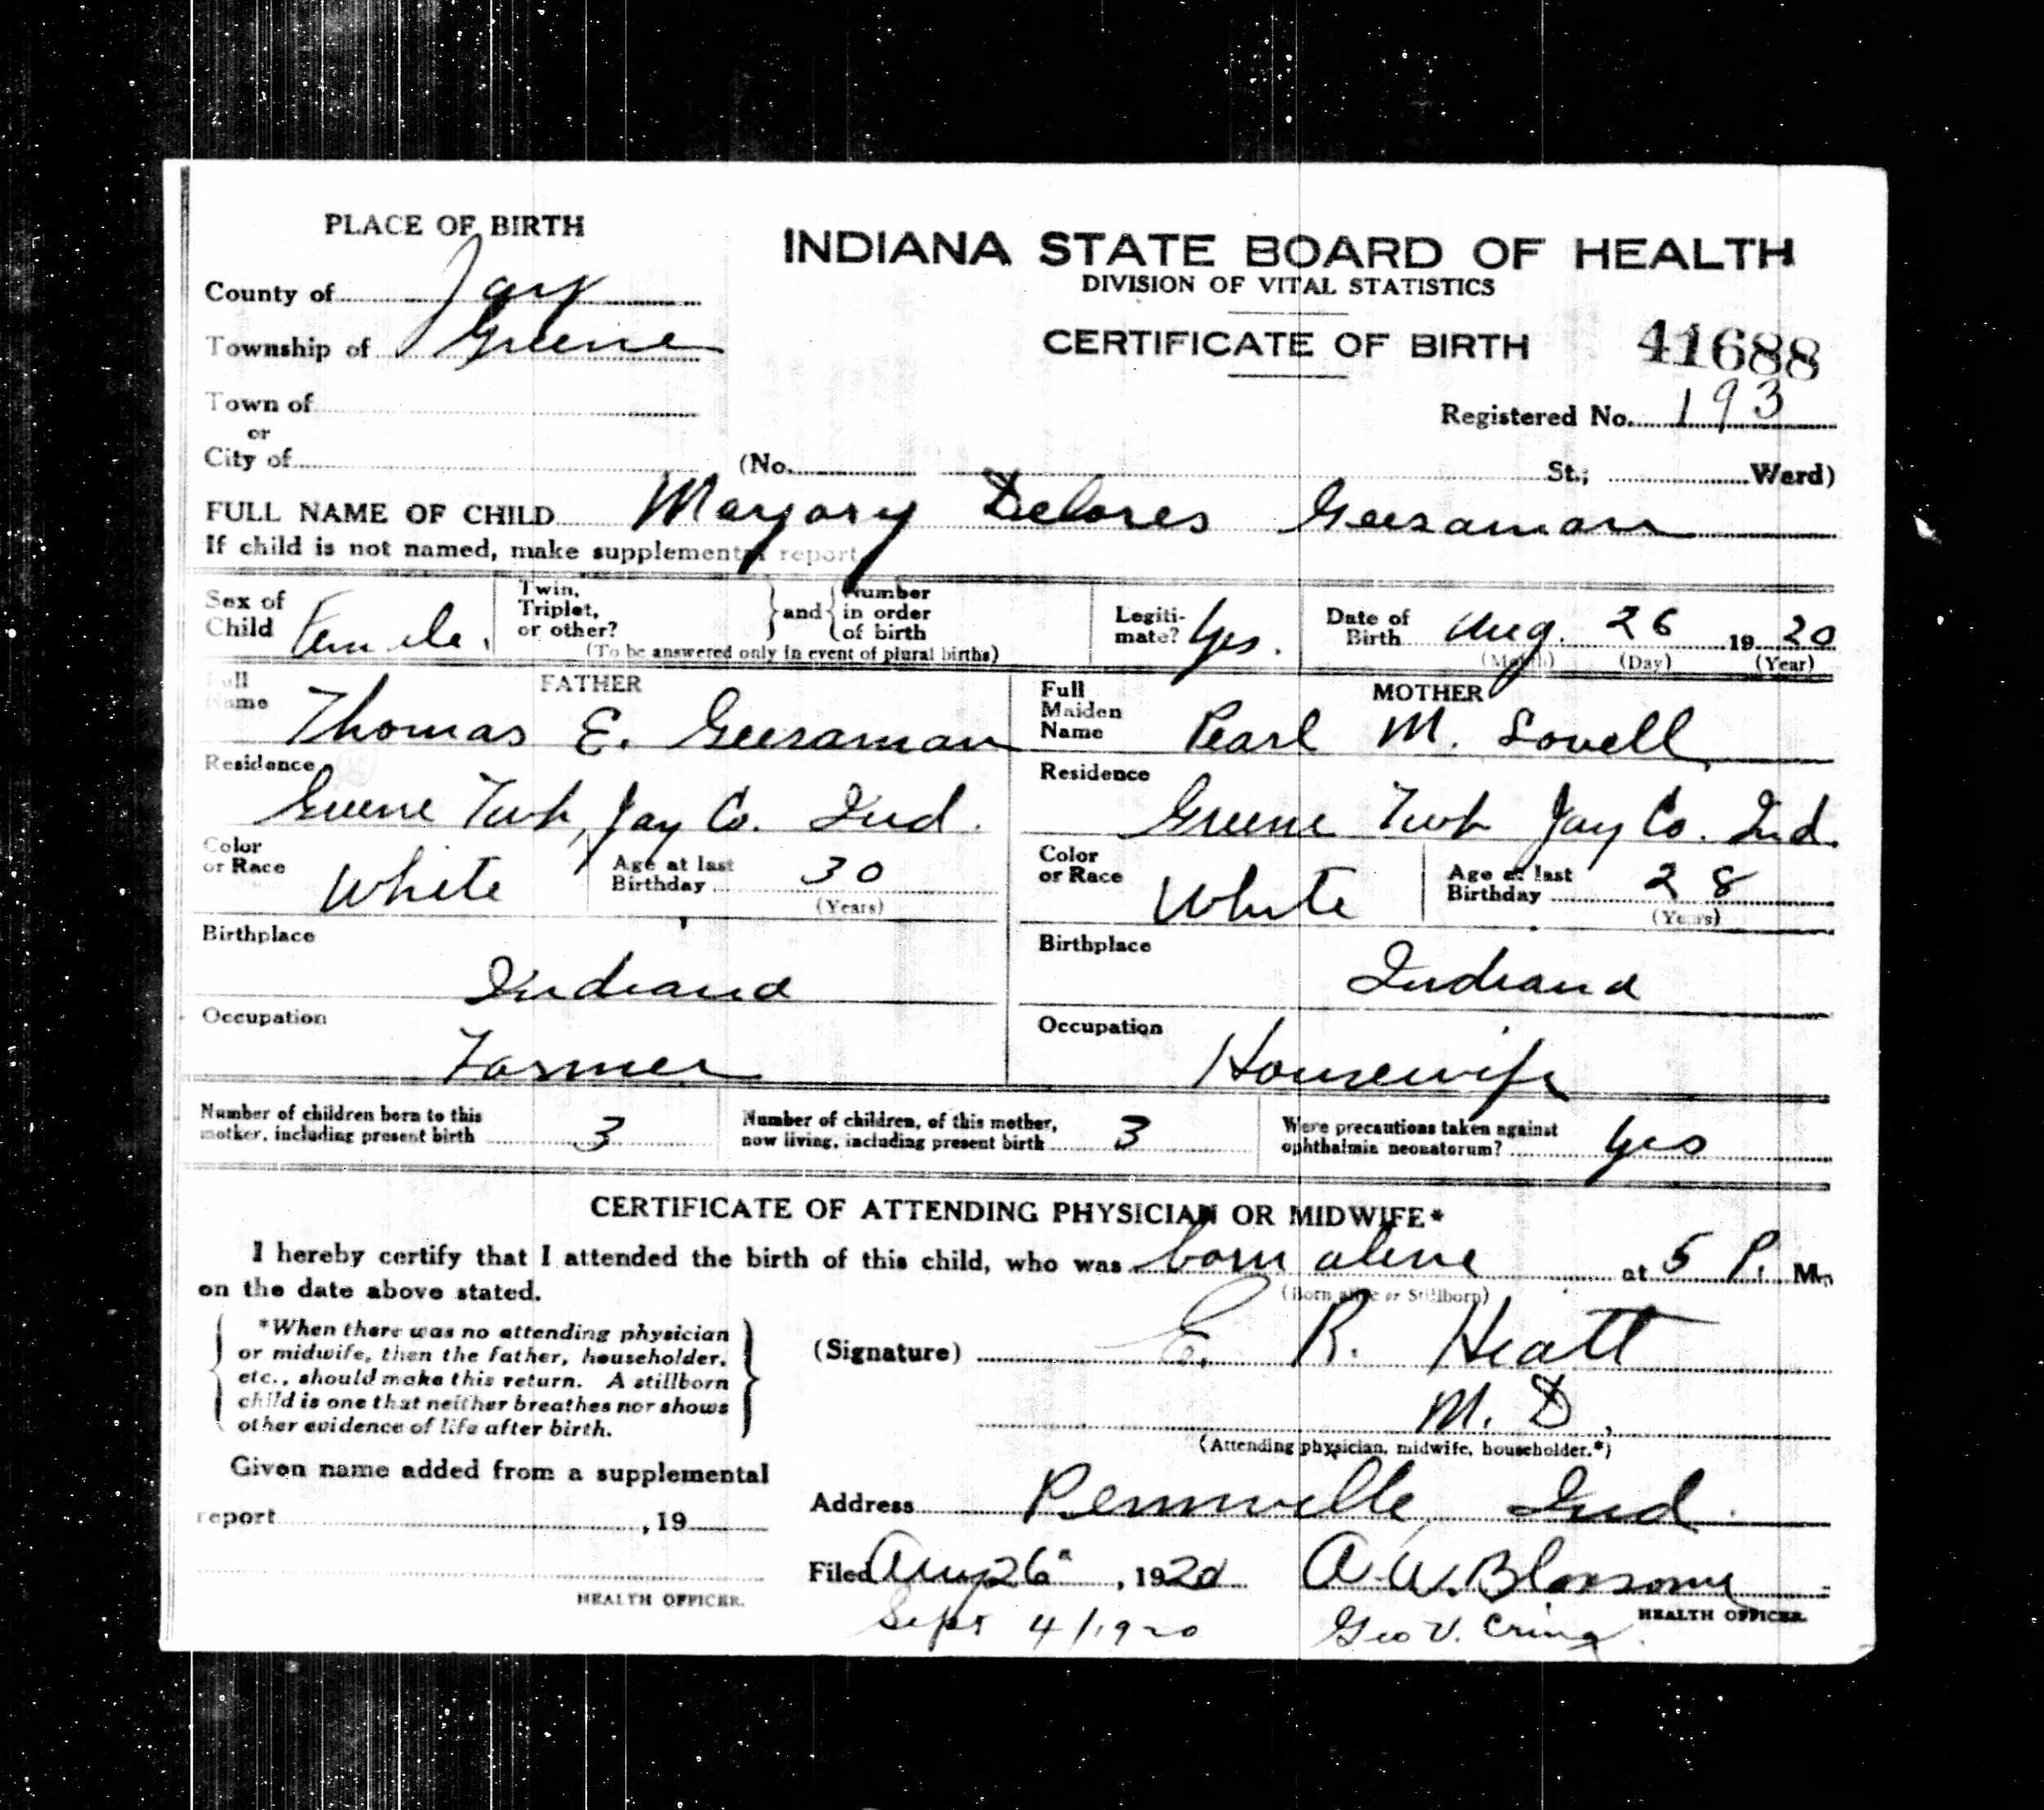 PLACE OF BIRTH
INDIANA STATE BOARD OF HEALTH
DIVISION OF VITAL STATISTICS
County of Jay
Township of Greene
CERTIFICATE OF BIRTH 41688
Town of
Registered No. 193
or
City of (No. St.; Ward)
FULL NAME OF CHILD Marjory Delores Geesaman
If child is not named, make supplemental report
Sex of Child Female.
Twin, Triplet, or other? and Number in order of birth
(To be answered only in event of plural births)
Legiti-mate? Yes.
Date of Birth Aug. 26 1920
(Month) (Day) (Year)
FATHER
Full Name Thomas E. Geesaman
Residence Greene Twp, Jay Co. Ind.
Color or Race White
Age at last Birthday 30
(Years)
Birthplace
Indiana
Occupation
Farmer
MOTHER
Full Maiden Name Pearl M. Lovell
Residence Greene Twp Jay Co. Ind.
Color or Race White
Age at last Birthday 28
(Years)
Birthplace
Indiana
Occupation
Housewife
Number of children born to this mother, including present birth 3
Number of children, of this mother, now living, including present birth 3
Were precautions taken against ophthalmia neonatorum? Yes
CERTIFICATE OF ATTENDING PHYSICIAN OR MIDWIFE*
I hereby certify that I attended the birth of this child, who was born alive at 5 P. M.,
on the date above stated.
(Born alive or Stillborn)
*When there was no attending physician
or midwife, then the father, householder,
etc., should make this return. A stillborn
child is one that neither breathes nor shows
other evidence of life after birth.
(Signature) E. R. Hiatt
M. D.,
(Attending physician, midwife, householder.*)
Given name added from a supplemental
report , 19
HEALTH OFFICER.
Address Pennville, Ind.
Filed Aug 26 , 1920 A. W. Blossom
HEALTH OFFICER.
Sept 4/1920 Geo V.